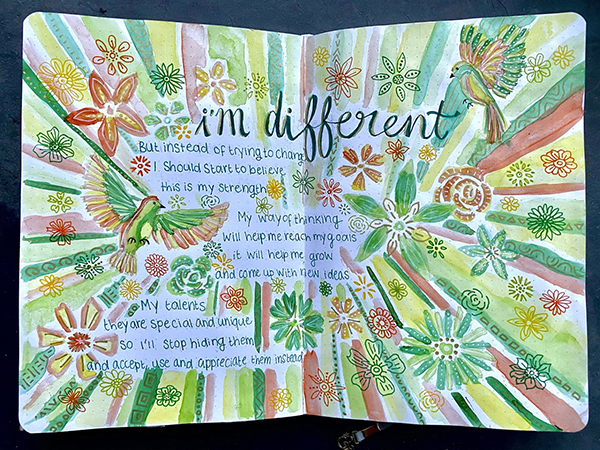 i'm different
But instead of trying to change
I should start to believe
this is my strength
My way of thinking
Will help me reach my goals
it will help me grow
and come up with new ideas
My talents
they are special and unique
so i'll stop hiding them
and accept, use and appreciate them instead